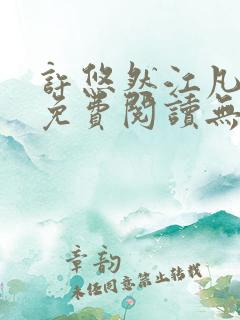 許悠然江凡
免費閱讀無
章韵
未任同意禁止转载